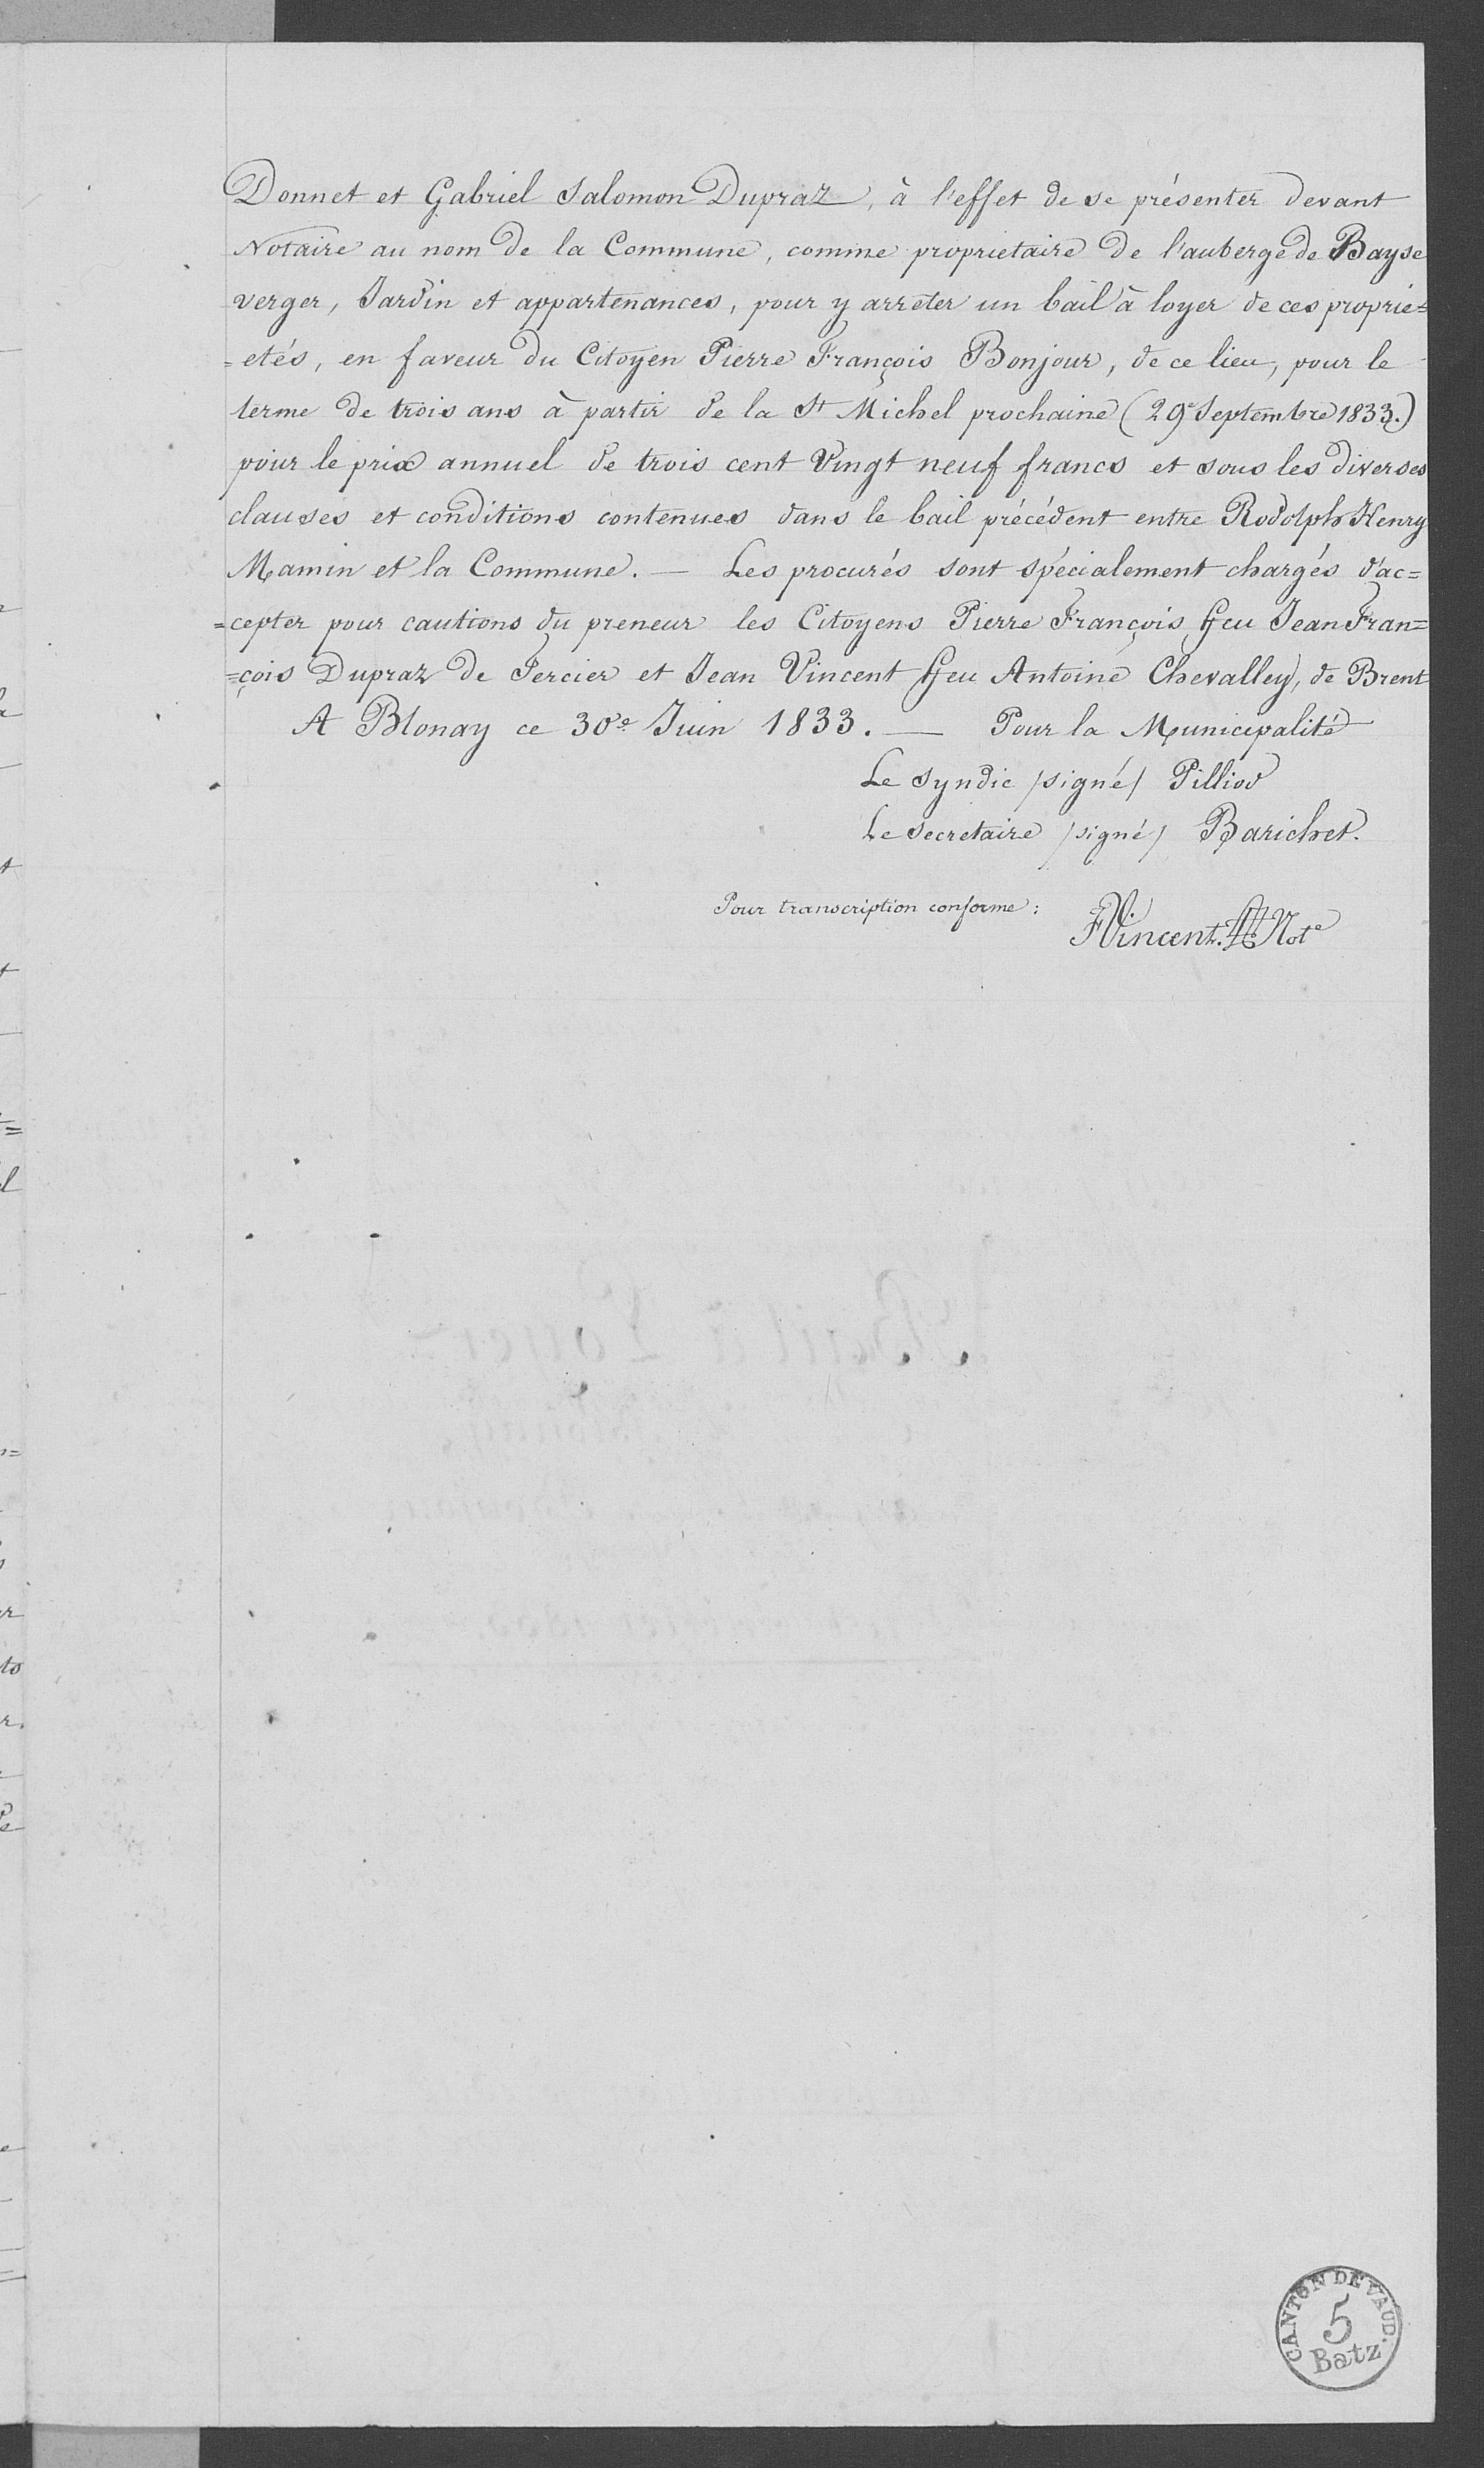 Donnet et Gabriel Salomon Dupraz, à l'effet de se présenter devant
Notaire au nom de la Commune, comme proprietaire de l'auberge de Bayse
verger, Jardin et appartenances, pour y arrêter un bail à loyer de ces proprié=
=etés, en faveur du Citoyen Pierre François Bonjour, de ce lieu, pour le
terme de trois ans à partir de la St Michel prochaine (29e Septembre 1833.)
pour le prix annuel de trois cent Vingt neuf francs et sous les diverses
clauses et conditions contenues dans le bail précédent entre Rodolph Henry
Mamin et la Commune. — Les procurés sont spécialement chargés d'ac=
=cepter pour cautions du preneur les Citoyens Pierre François, ffeu Jean Fran=
=çois Dupraz de Tercier et Jean Vincent ffeu Antoine Chevalley, de Brent
A Blonay ce 30e Juin 1833. — Pour la Municipalité
Le Syndic /signé/ Pilliod
Le Secretaire /signé/ Barichet.
Pour transcription conforme :
FVincent. Note
CANTON DE VAUD.
5
Batz